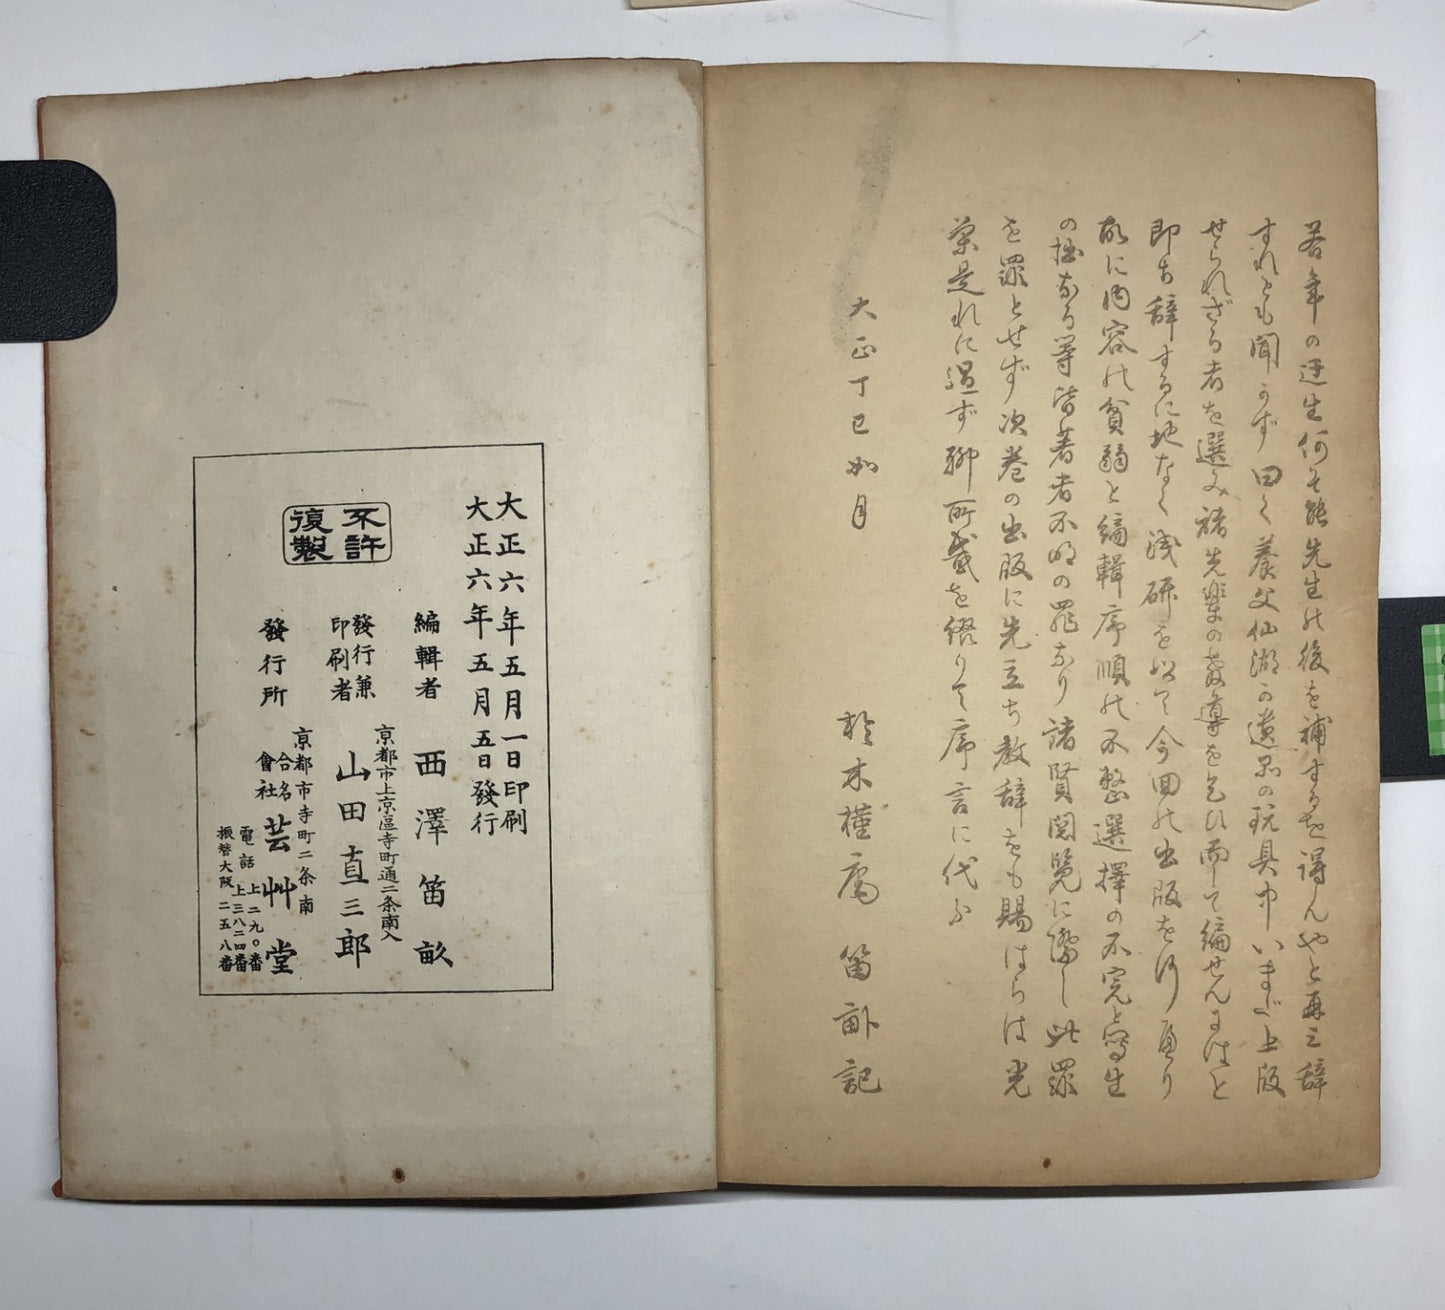 若年の迂生何ぞ能先生の後を補するを得んやと再三辞
すれども聞かず曰く養父仙湖の遺品の玩具中いまだ上版
せられざる者を選み諸先輩の教導を乞ひ而して編せんとはと
即ち辞するに地なく浅研を以て今回の出版を
故に内容の貧弱と編輯序順の不整選擇の不完と写生
の拙なる等皆著者不明の罪なり諸賢閲覧に際し此罪
を罪とせず次巻の出版に先立ち教辞をも賜はらば光
栄是れに過ず聊所感を綴りて序言に代ふ
大正丁巳如月
於木槿庵 笛畝記
大正六年五月一日印刷
大正六年五月五日發行
編輯者 西澤笛畝
京都市上京區寺町通二条南入
發行兼
印刷者 山田直三郎
不許
復製
京都市寺町二条南
發行所 合名會社 芸艸堂
電話 上二九〇番
上三八二四番
振替大阪二五八番